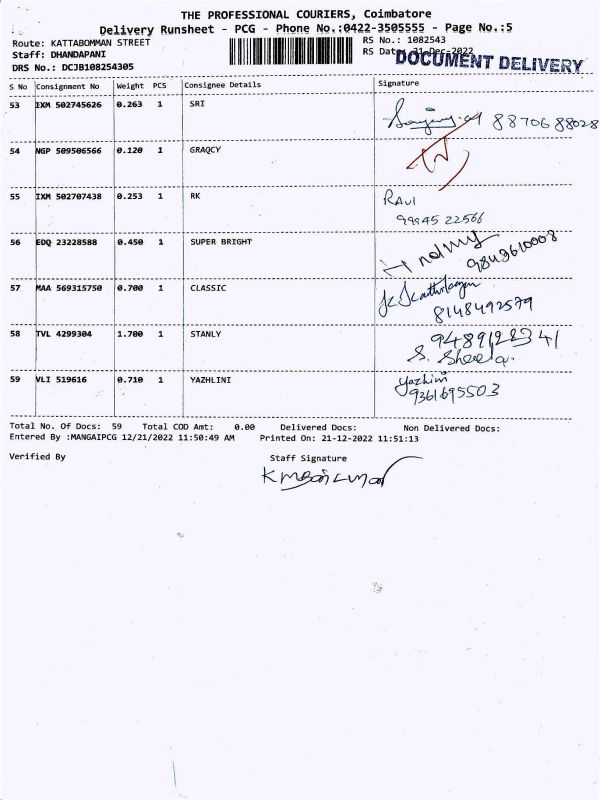 THE PROFESSIONAL COURIERS, Coimbatore
Delivery Runsheet - PCG - Phone No.:0422-3505555 - Page No.:5
Route: KATTABOMMAN STREET
RS No.: 1082543
Staff: DHANDAPANI
RS Date: 21-Dec-2022
DOCUMENT DELIVERY
DRS No.: DCJB108254305
S No Consignment No Weight PCS Consignee Details Signature
53 IXM 502745626 0.263 1 SRI
8870688028
54 NGP 509506566 0.120 1 GRAQCY
55 IXM 502707438 0.253 1 RK RAVI
99845 22566
56 EDQ 23228588 0.450 1 SUPER BRIGHT
9843610008
57 MAA 569315750 0.700 1 CLASSIC
8148492579
58 TVL 4299304 1.700 1 STANLY
S. Sheela.
59 VLI 519616 0.710 1 YAZHLINI Yazhini
9361695503
Total No. Of Docs: 59 Total COD Amt: 0.00 Delivered Docs: Non Delivered Docs:
Entered By :MANGAIPCG 12/21/2022 11:50:49 AM Printed On: 21-12-2022 11:51:13
Verified By Staff Signature